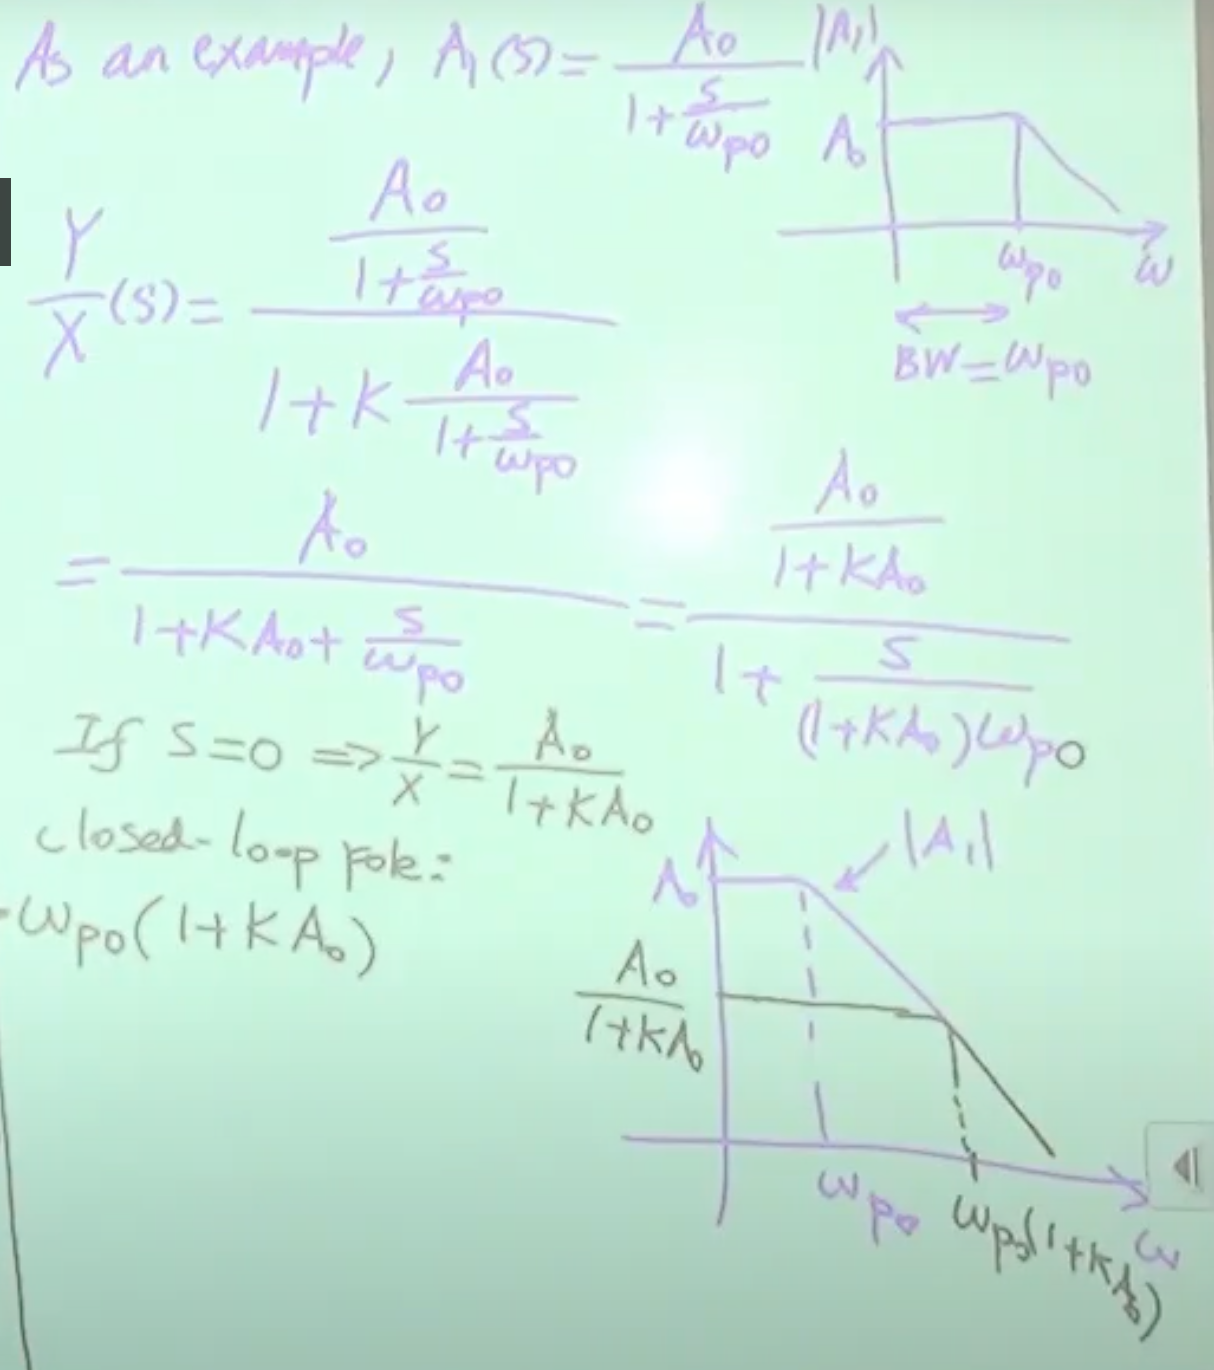 As an example, A₁(s) = A₀ / (1 + s/ωp0)
|A₁|
A₀
ωp0
ω
BW = ωp0
Y/X (s) = (A₀ / (1 + s/ωp0)) / (1 + K A₀ / (1 + s/ωp0))
= A₀ / (1 + KA₀ + s/ωp0) = (A₀ / (1 + KA₀)) / (1 + s / ((1 + KA₀)ωp0))
If s = 0 ⇒ Y/X = A₀ / (1 + KA₀)
closed-loop pole:
-ωp0(1 + KA₀)
|A₁|
A₀
A₀ / (1 + KA₀)
ωp0
ωp0(1 + KA₀)
ω